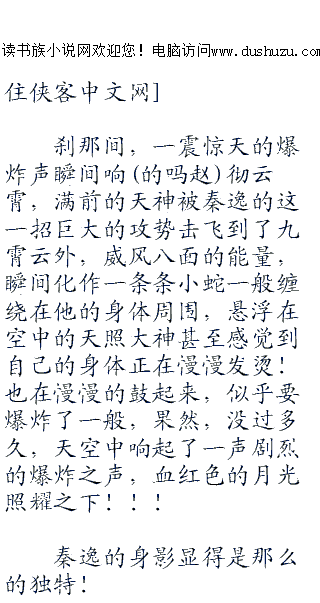 读书族小说网欢迎您！电脑访问www.dushuzu.com
住侠客中文网]
刹那间，一震惊天的爆
炸声瞬间响(的吗赵)彻云
霄，满前的天神被秦逸的这
一招巨大的攻势击飞到了九
霄云外，威风八面的能量，
瞬间化作一条条小蛇一般缠
绕在他的身体周围，悬浮在
空中的天照大神甚至感觉到
自己的身体正在慢慢发烫！
也在慢慢的鼓起来，似乎要
爆炸了一般，果然，没过多
久，天空中响起了一声剧烈
的爆炸之声，血红色的月光
照耀之下！！！
秦逸的身影显得是那么
的独特！